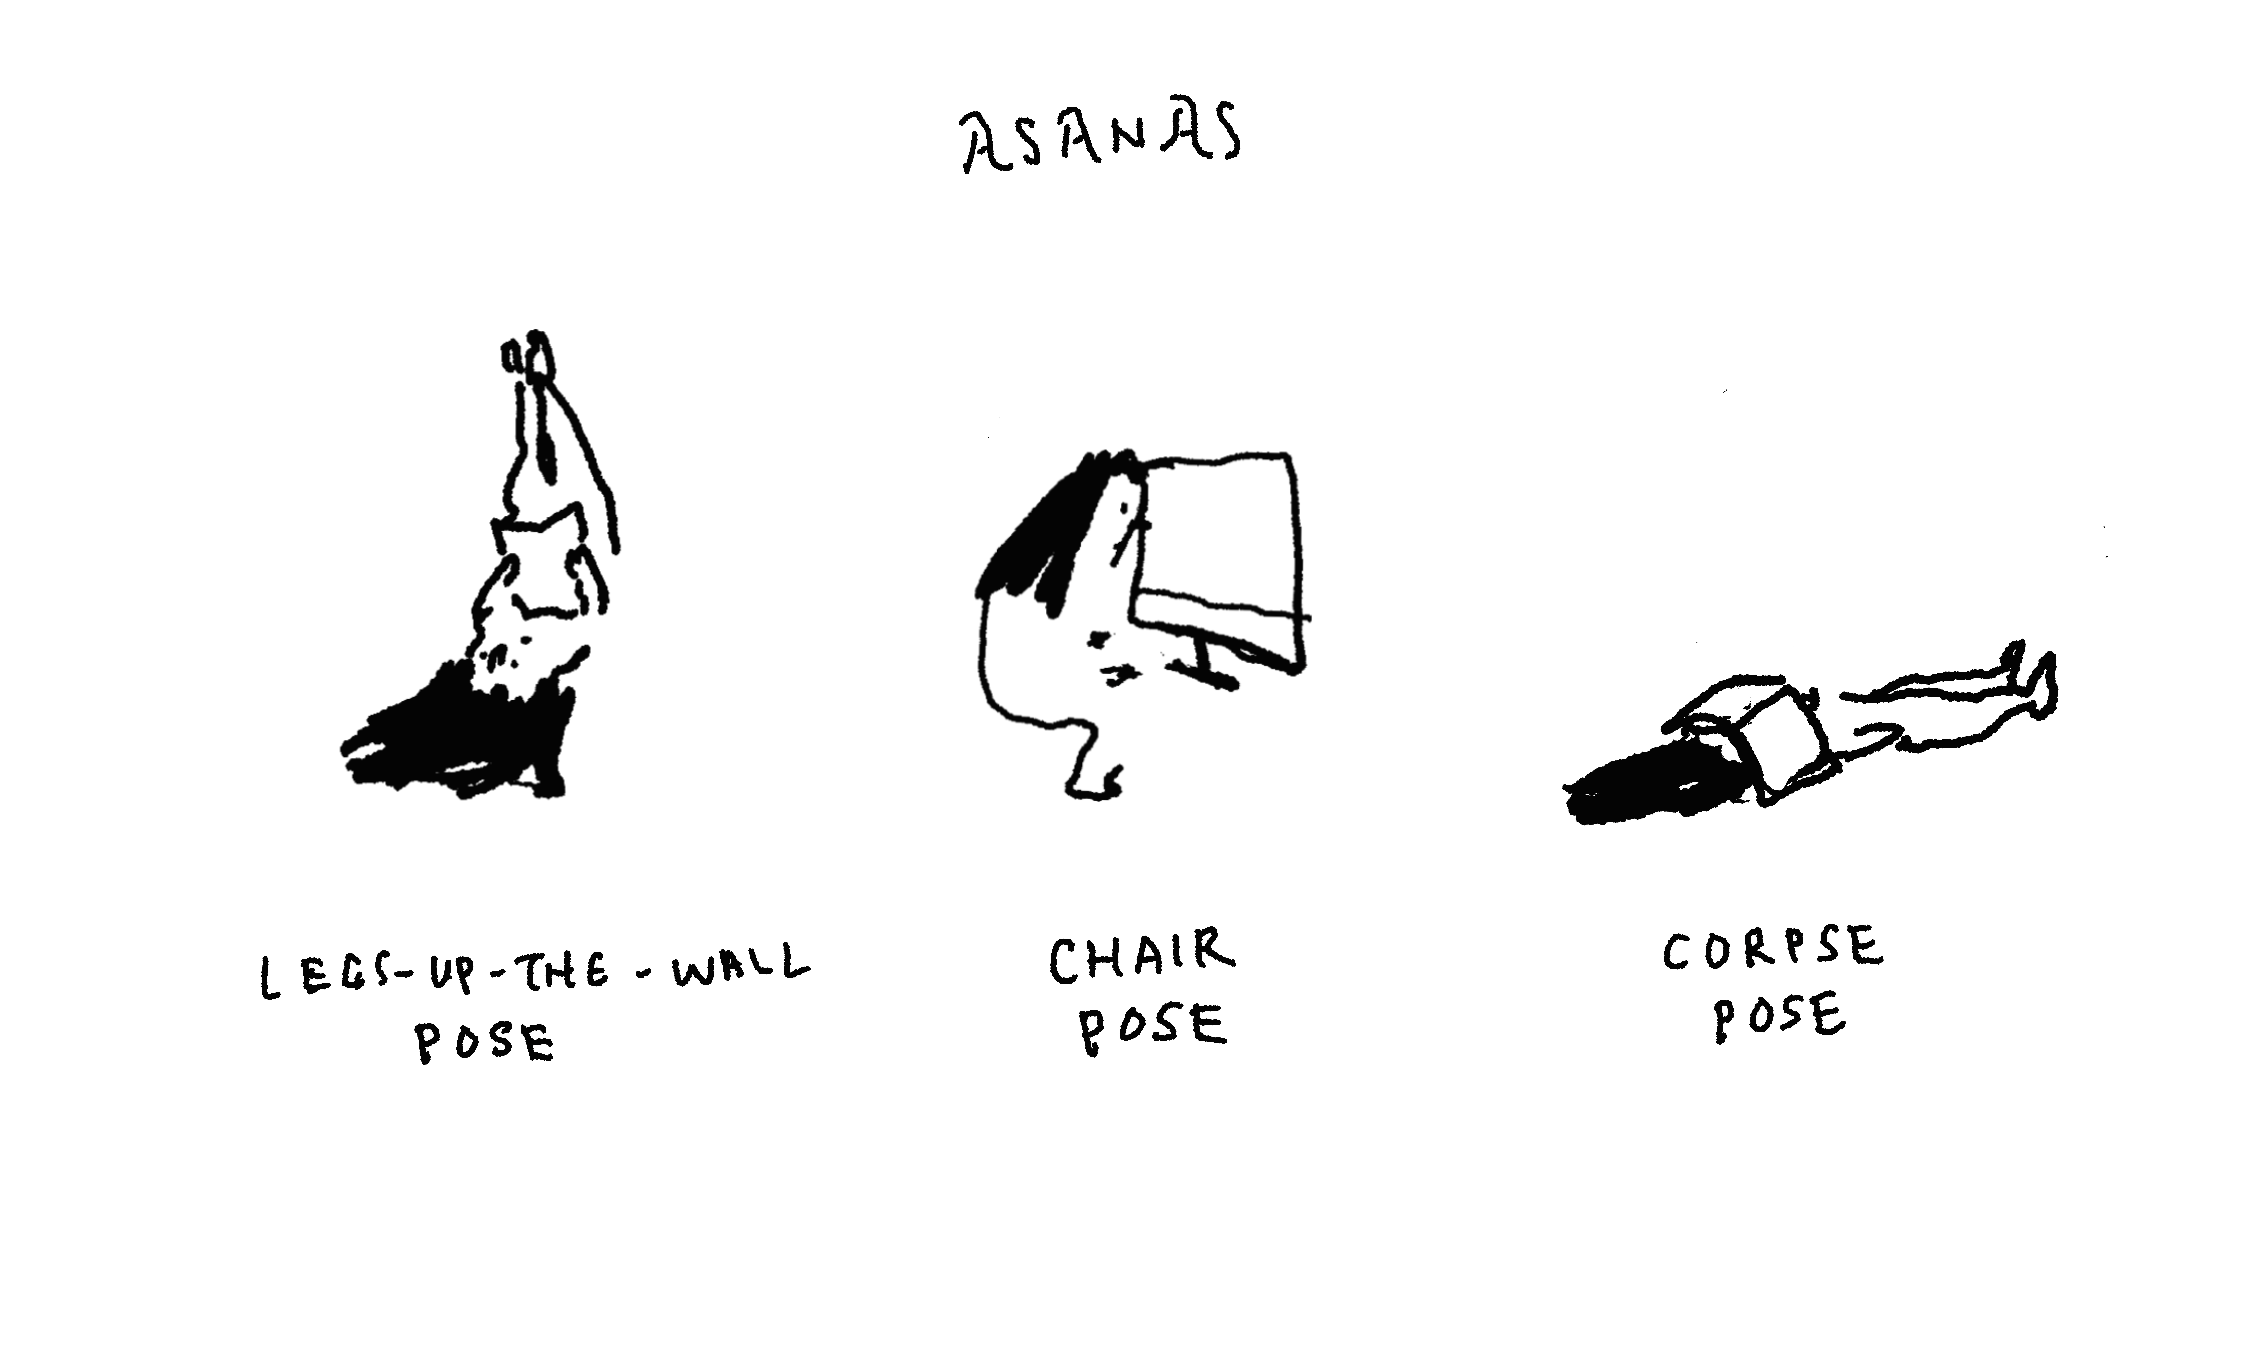 ASANAS
LEGS-UP-THE-WALL
POSE
CHAIR
POSE
CORPSE
POSE